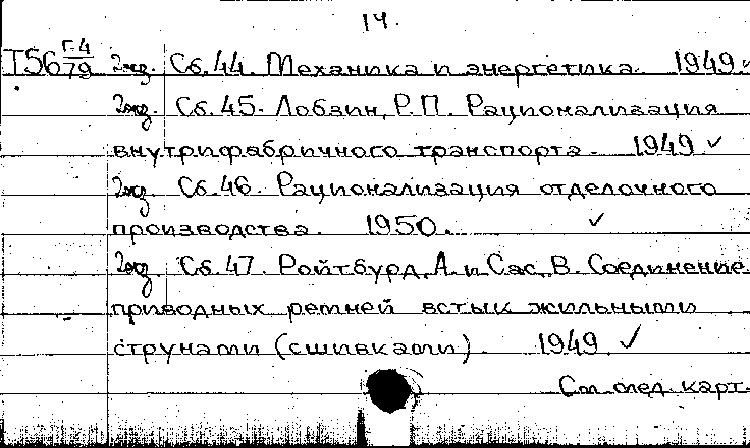 14.
Т56 Г-4/79 2 экз. Сб. 44. Механика и энергетика. 1949 ✓
2 экз. Сб. 45. Лобзин, Р.П. Рационализация
внутрифабричного транспорта. 1949 ✓
2 экз. Сб. 46. Рационализация отделочного
производства. 1950. ✓
2 экз. Сб. 47. Ройтбурд, А. и Сас, В. Соединение
приводных ремней встык жильными
струнами (сшивками). 1949. ✓
См. след. карт.